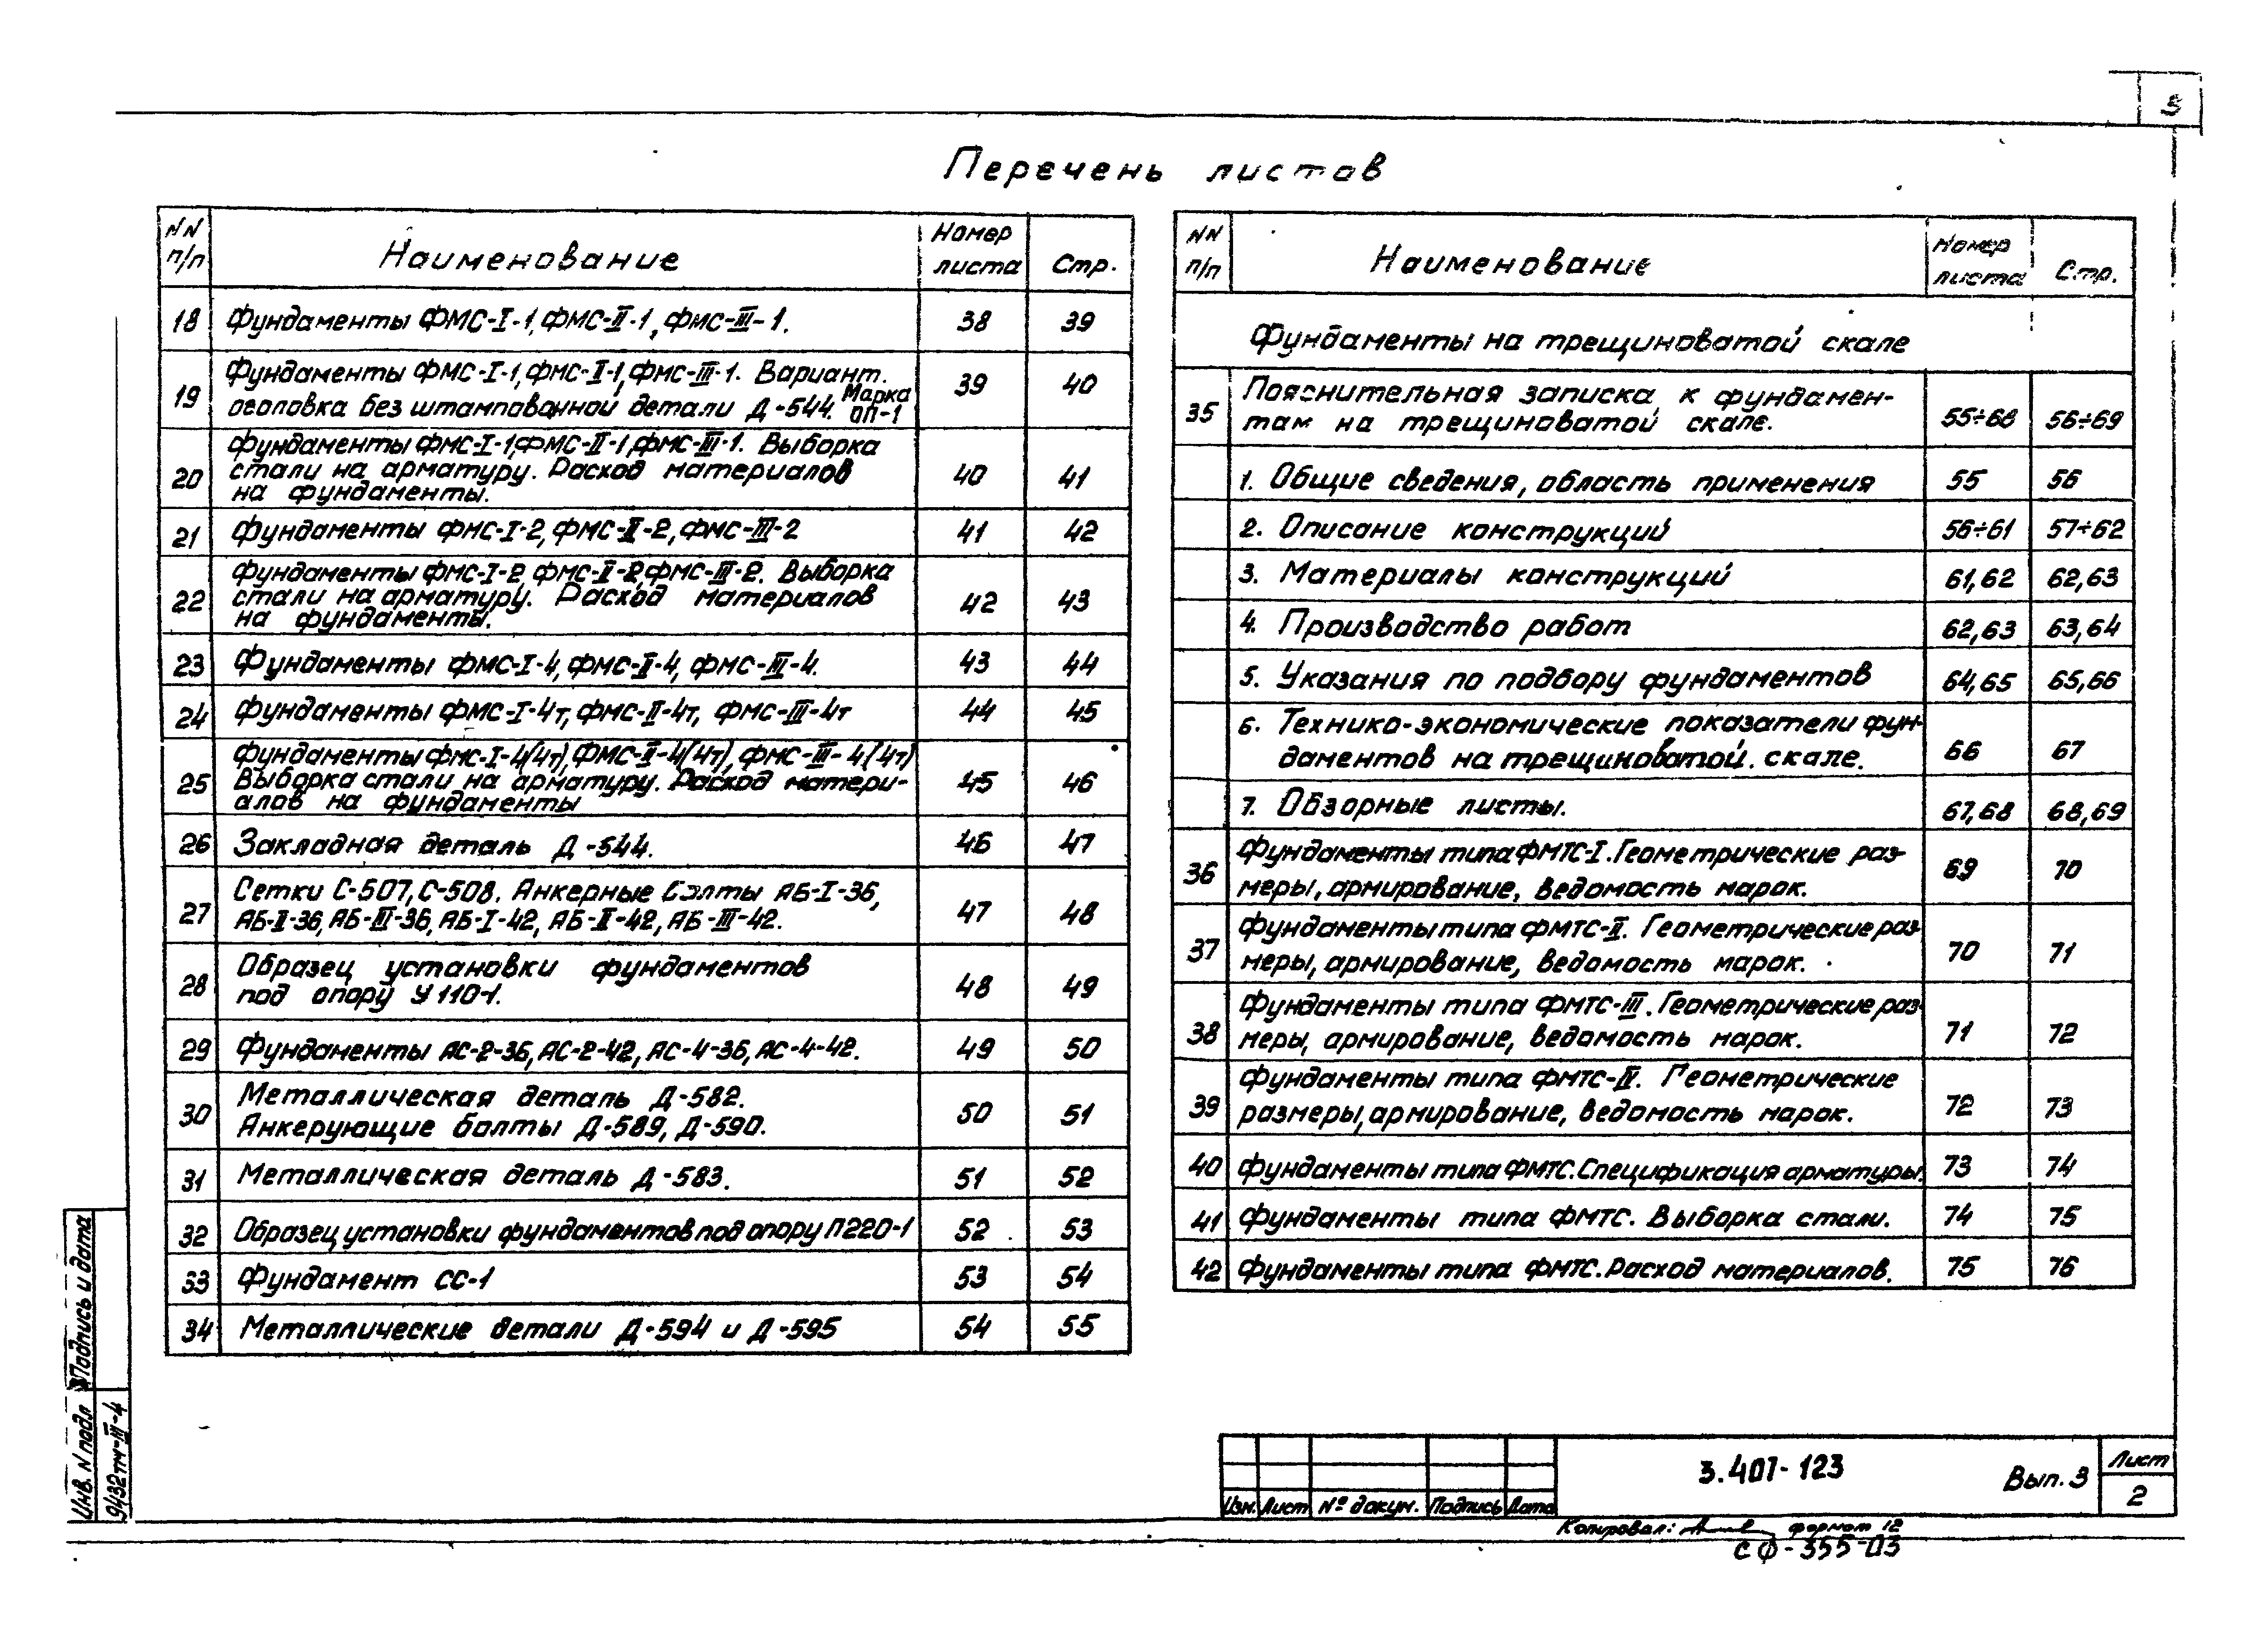 5
Перечень листов
NN п/п Наименование Номер листа Стр.
18 Фундаменты ФМС-I-1, ФМС-II-1, ФМС-III-1. 38 39
19 Фундаменты ФМС-I-1, ФМС-II-1, ФМС-III-1. Вариант. 39 40
оголовка без штампованной детали Д-544. Марка ОП-1
20 Фундаменты ФМС-I-1, ФМС-II-1, ФМС-III-1. Выборка
стали на арматуру. Расход материалов 40 41
на фундаменты.
21 Фундаменты ФМС-I-2, ФМС-II-2, ФМС-III-2 41 42
22 Фундаменты ФМС-I-2, ФМС-II-2, ФМС-III-2. Выборка
стали на арматуру. Расход материалов 42 43
на фундаменты.
23 Фундаменты ФМС-I-4, ФМС-II-4, ФМС-III-4. 43 44
24 Фундаменты ФМС-I-4т, ФМС-II-4т, ФМС-III-4т 44 45
25 Фундаменты ФМС-I-4(4т), ФМС-II-4(4т), ФМС-III-4(4т)
Выборка стали на арматуру. Расход матери- 45 46
алов на фундаменты
26 Закладная деталь Д-544. 46 47
27 Сетки С-507, С-508. Анкерные болты АБ-I-36, 47 48
АБ-II-36, АБ-III-36, АБ-I-42, АБ-II-42, АБ-III-42.
28 Образец установки фундаментов 48 49
под опору У110-1.
29 Фундаменты АС-2-36, АС-2-42, АС-4-36, АС-4-42. 49 50
30 Металлическая деталь Д-582. 50 51
Анкерующие болты Д-589, Д-590.
31 Металлическая деталь Д-583. 51 52
32 Образец установки фундаментов под опору П220-1 52 53
33 Фундамент СС-1 53 54
34 Металлические детали Д-594 и Д-595 54 55
NN п/п Наименование Номер листа Стр.
Фундаменты на трещиноватой скале
35 Пояснительная записка к фундамен- 55÷68 56÷69
там на трещиноватой скале.
1. Общие сведения, область применения 55 56
2. Описание конструкций 56÷61 57÷62
3. Материалы конструкций 61,62 62,63
4. Производство работ 62,63 63,64
5. Указания по подбору фундаментов 64,65 65,66
6. Технико-экономические показатели фун- 66 67
даментов на трещиноватой. скале.
7. Обзорные листы. 67,68 68,69
36 Фундаменты типа ФМТС-I. Геометрические раз- 69 70
меры, армирование, ведомость марок.
37 Фундаменты типа ФМТС-II. Геометрические раз- 70 71
меры, армирование, ведомость марок.
38 Фундаменты типа ФМТС-III. Геометрические раз- 71 72
меры, армирование, ведомость марок.
39 Фундаменты типа ФМТС-IV. Геометрические 72 73
размеры, армирование, ведомость марок.
40 Фундаменты типа ФМТС. Спецификация арматуры. 73 74
41 Фундаменты типа ФМТС. Выборка стали. 74 75
42 Фундаменты типа ФМТС. Расход материалов. 75 76
Инв. N подл Подпись и дата
9432тм-III-4
Изм. Лист № докум. Подпись Дата
3.407-123 Вып. 3
Лист
2
Копировал: формат 12
СФ-355-03